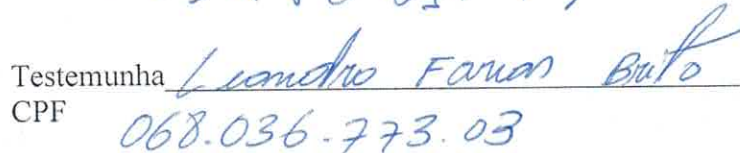 Testemunha Leandro Farias Brito
CPF 068.036.773.03